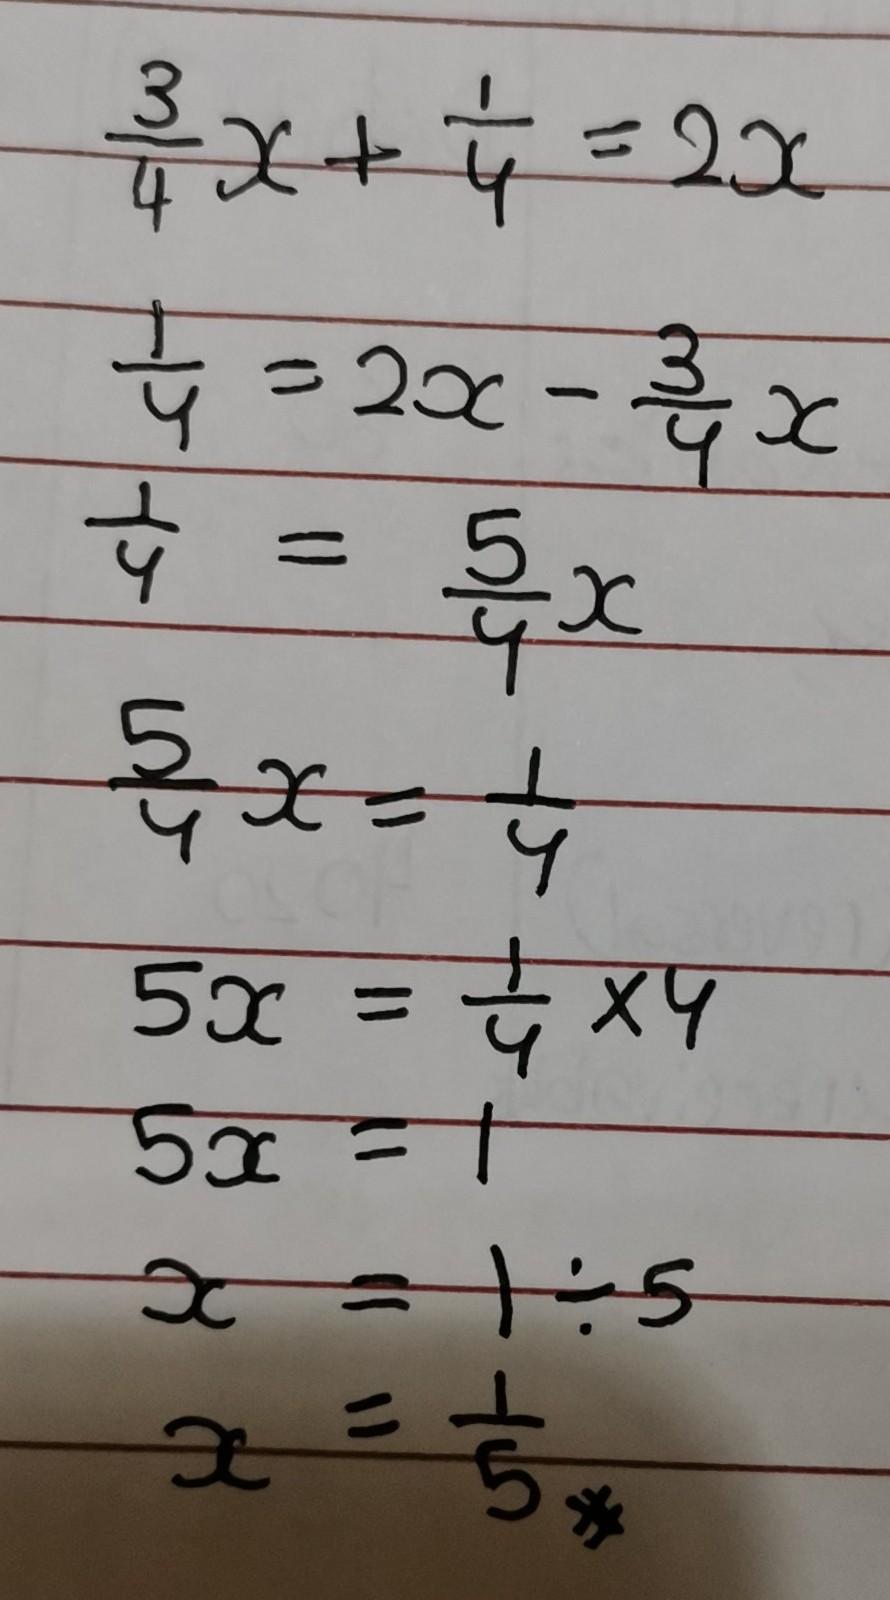 3/4 x + 1/4 = 2x
1/4 = 2x - 3/4 x
1/4 = 5/4 x
5/4 x = 1/4
5x = 1/4 × 4
5x = 1
x = 1 ÷ 5
x = 1/5 *